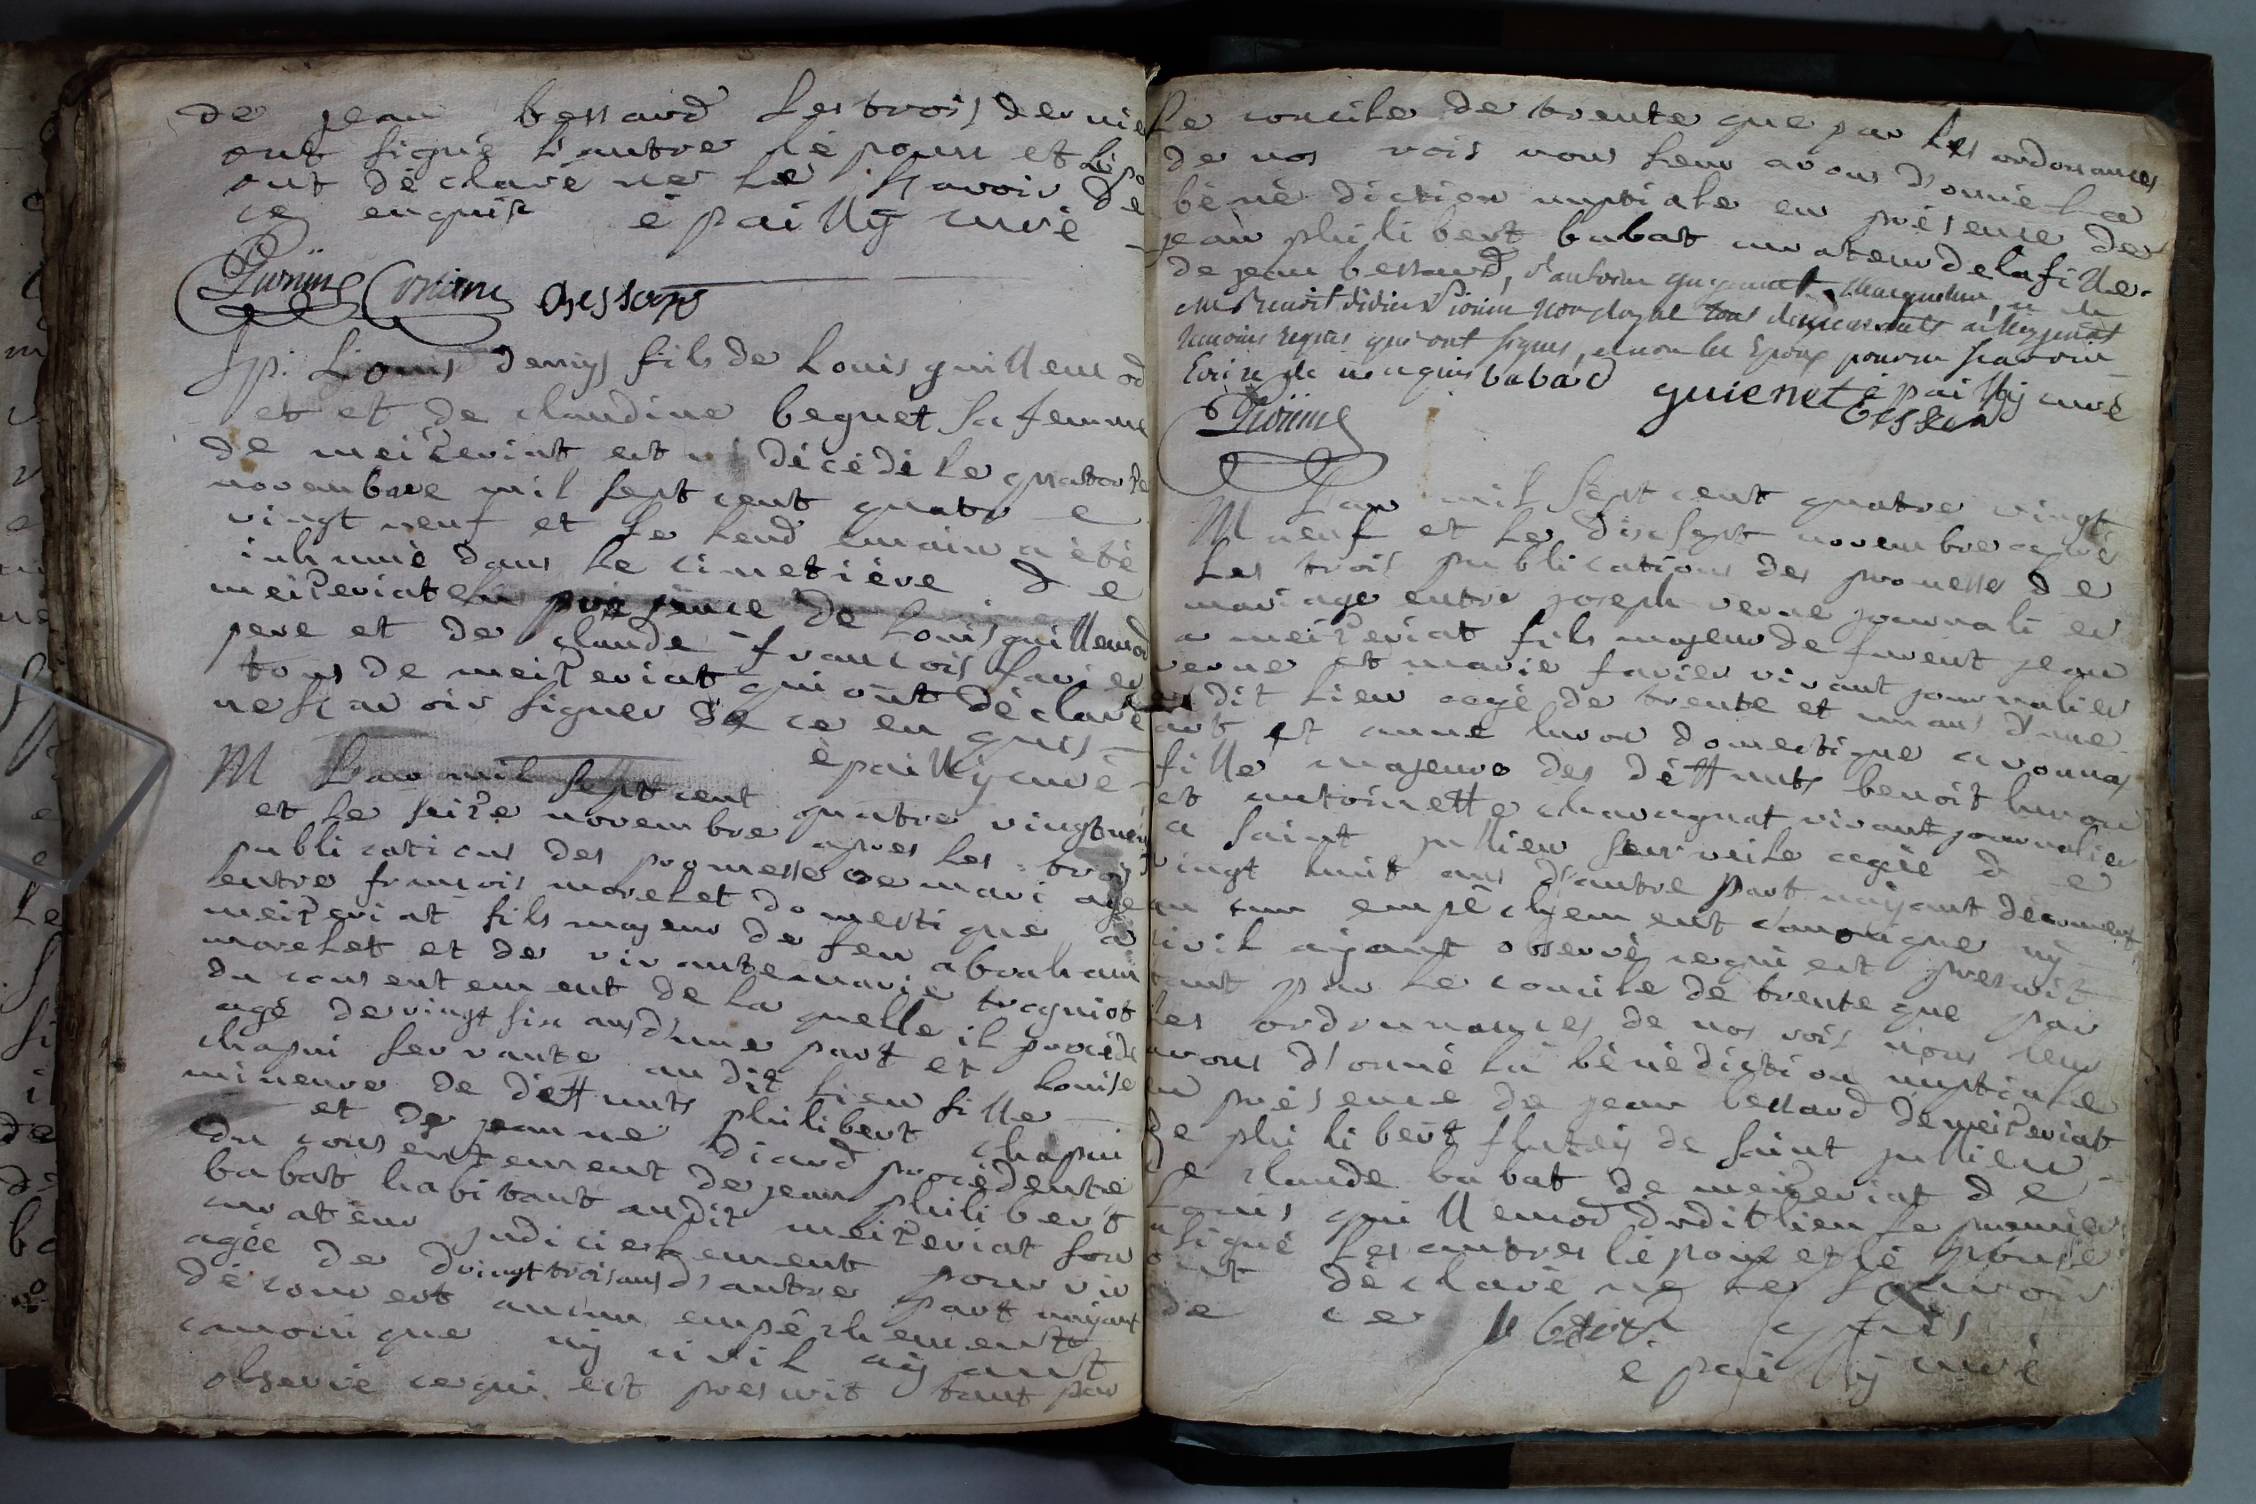 de jean bessard les trois dernie
ont signé l'autre l'é poux et l'épo
ont déclaré ne le sçavoir de
ce enquis épailly curé
Sp. Louis denys fils de Louis guillemod
et et de claudine beguet sa femme
de meizeriat est décédé le quatorze
novembre mil sept cent quatre
vingt neuf et le lendemain a été
inhumé dans le cimetière de
meizeriat en présence de Louis guillemod
pere et de claude françois favier
tous de meizeriat qui ont déclaré
ne sçavoir signer de ce enquis
épailly curé
M L'an mil sept cent quatre vingt neuf
et le seize novembre apres les trois
publications des promesse de mariage
entre francois morelet domestique a
meizeriat fils majeur de feu abraham
morelet et de vivante marie traguiot
du consentement de la quelle il procéde
agé de vingt six ans d'une part et Louise
chapui servante au dit lieu fille
mineure de déffunts philibert chapui
et de jeanne diard procédente
du consentement de jean philibert
babat habitant audit meizeriat son
curateur judiciellement pourvu
agée de vingt trois ans d'autre part naÿant
découvert aucun empêchement
canonique nÿ civil aÿant
observé ce qui est prescrit tant par
Le concile de trente que par les ordonnances
de nos rois nous leur avons d'onné la
bénédiction nuptiale en présence de
jean philibert babat curateur de la fille
de jean bessard,
temoins requis qui ont signés, et non les Epoux pour ne sçavoir
Ecrire de ce enquis babad guienet épailly curé
M L'an mil sept cent quatre vingt
neuf et le dix sept novembre après
les trois publications des promesses de
mariage entre joseph verne journalier
a meizeriat fils majeur de furent jean
verne et marie favier vivant journalier
au dit lieu agé de trente et un ans d'une
part et anne luron domestique a vonnas
fille majeure des déffunts benoit luron
et antoinette chavagnat vivant journalier
a saint jullien sur veile agée de
vingt huit ans d'autre part naÿant découvert
aucun empêchement canonique nÿ
civil aÿant observé ce qui est prescrit
tant par le concile de trente que par
les ordonnances de nos rois nous leur
avons d'onné la bénédiction nuptiale
en présence de jean bessard de meizeriat
de philibert de saint jullien
de claude babat de meizeriat de
Louis guillemod dudit lieu le premier
a signé les autres l'époux et l'é pouse
ont déclaré ne le sçavoir
de ce enquis
épailly curé